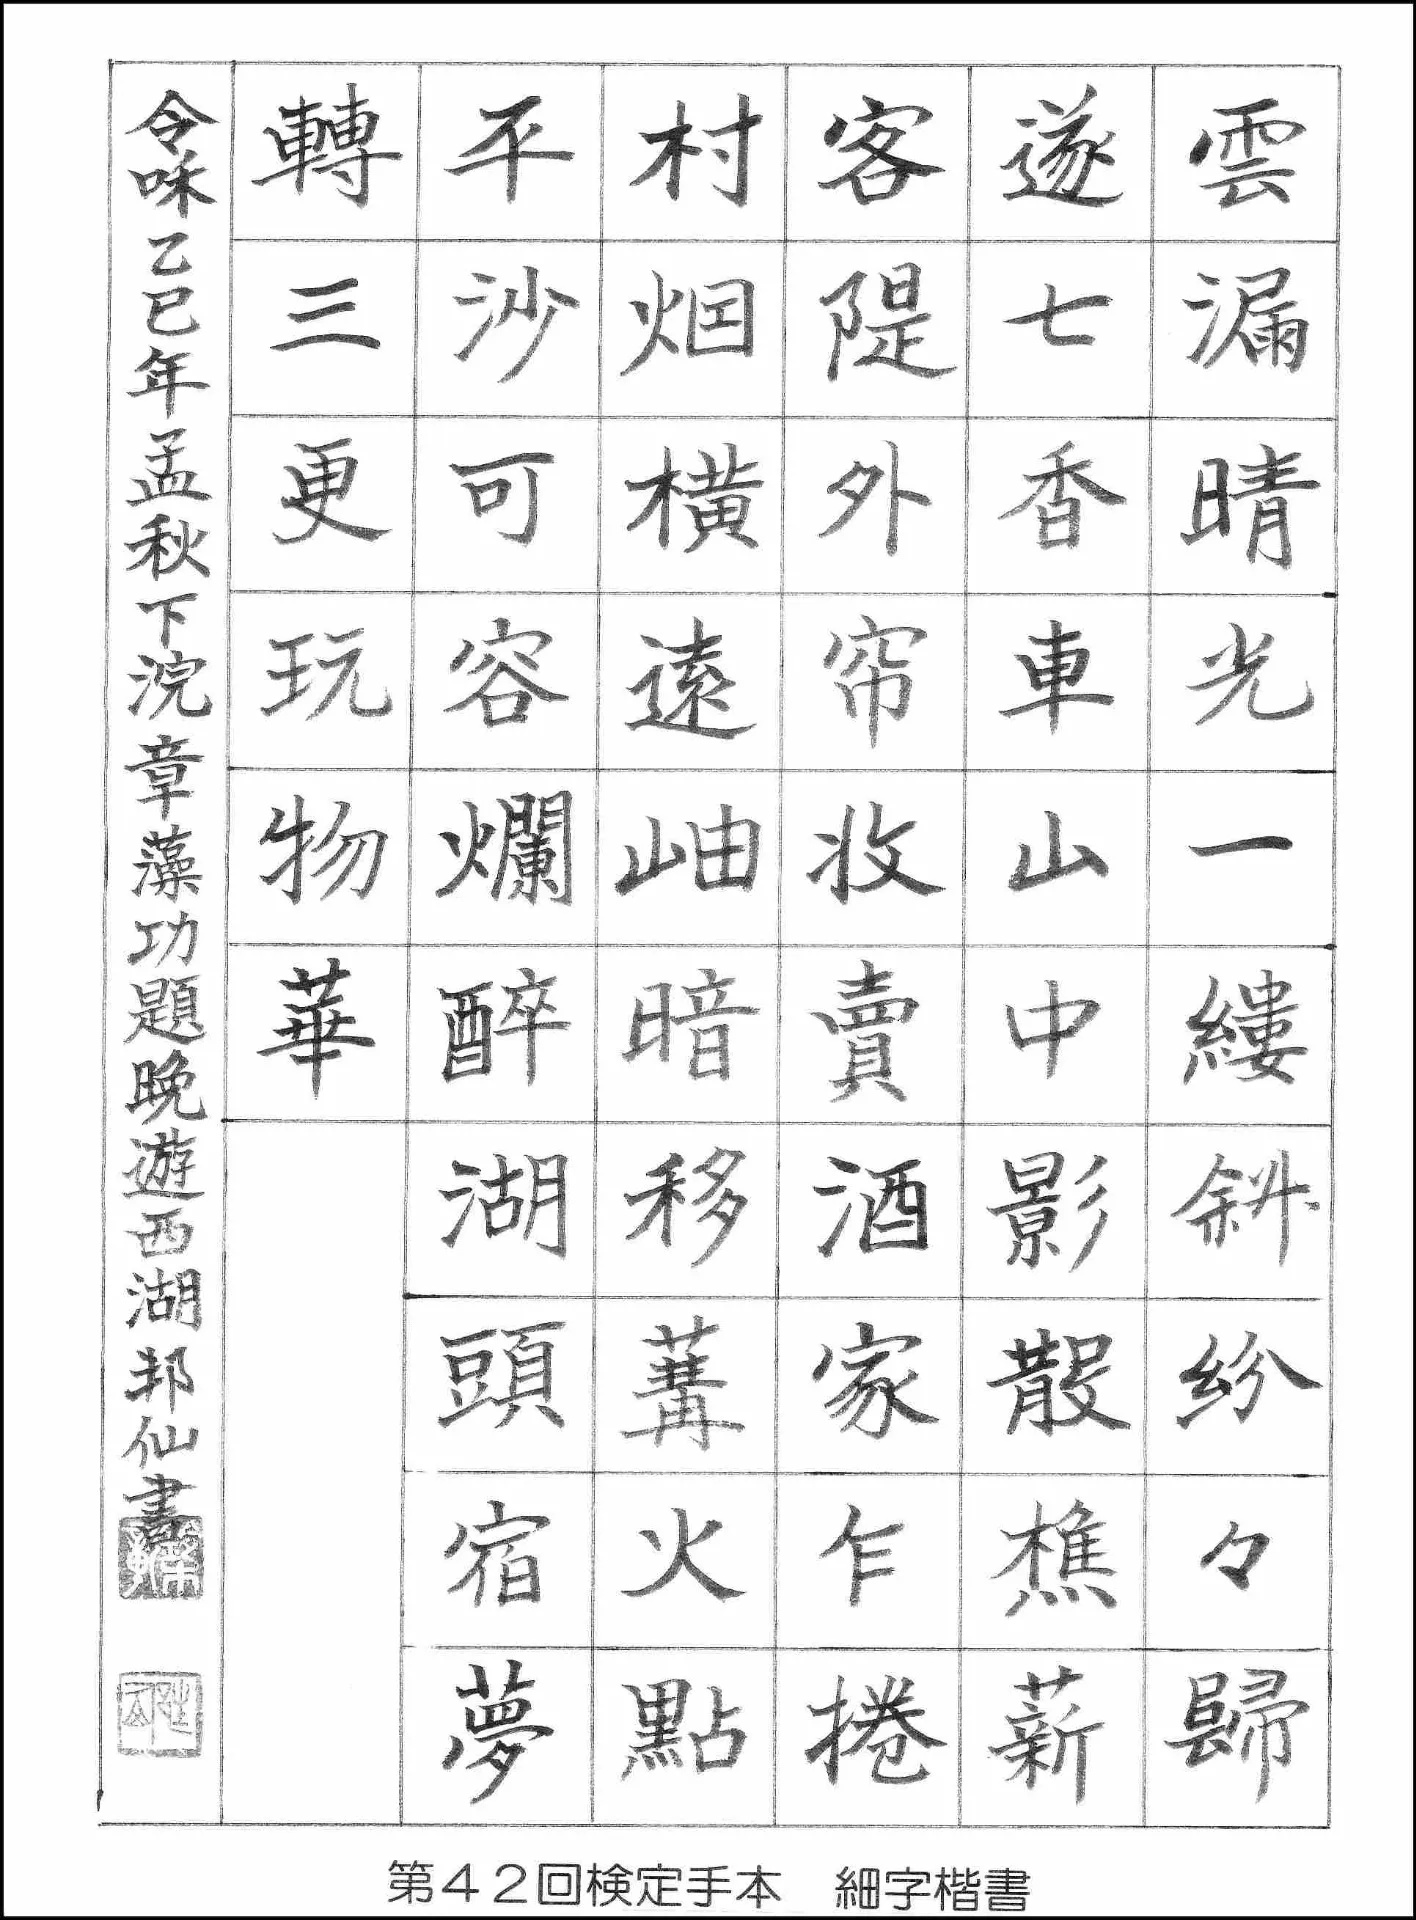 雲漏晴光一縷斜紛々歸
遂七香車山中影散樵薪
客隄外帘收賣酒家乍捲
村烟橫遠岫暗移篝火點
平沙可容爛醉湖頭宿夢
轉三更玩物華
令咊乙巳年孟秋下浣章藻功題晩遊西湖邦仙書
第４２回検定手本　細字楷書